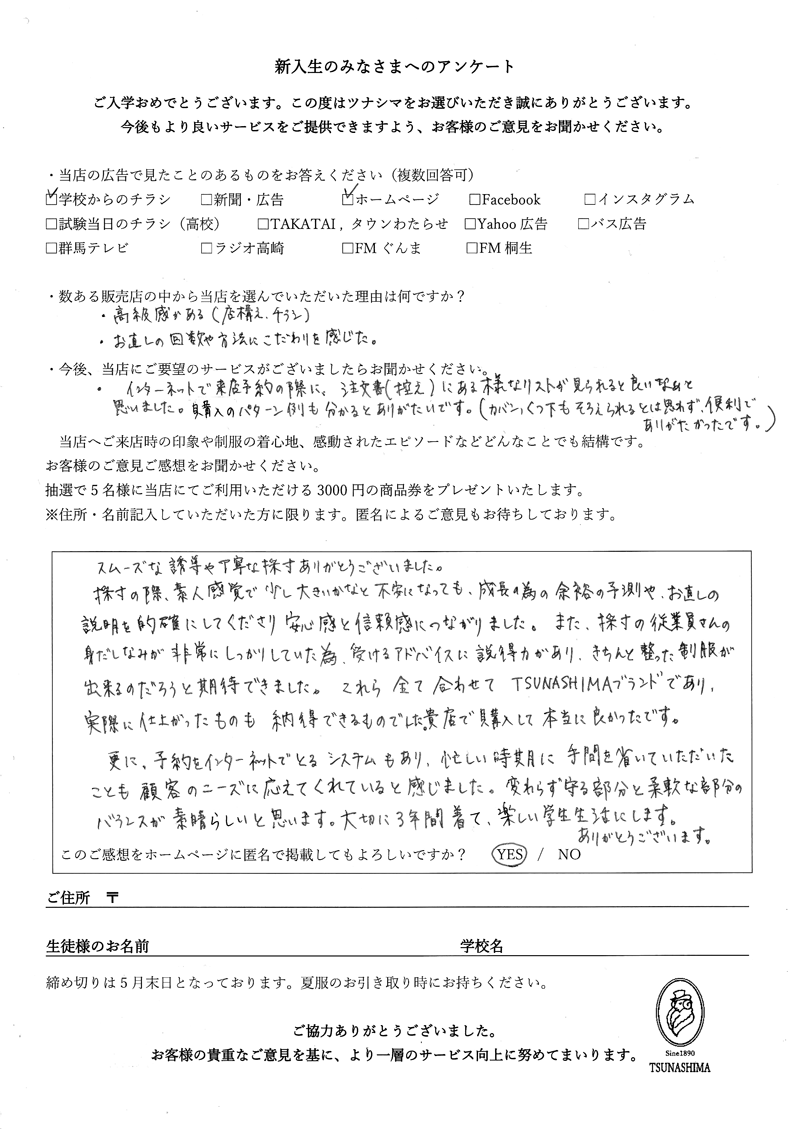 新入生のみなさまへのアンケート
ご入学おめでとうございます。この度はツナシマをお選びいただき誠にありがとうございます。
今後もより良いサービスをご提供できますよう、お客様のご意見をお聞かせください。
・当店の広告で見たことのあるものをお答えください（複数回答可）
☑学校からのチラシ □新聞・広告 ☑ホームページ □Facebook □インスタグラム
□試験当日のチラシ（高校） □TAKATAI , タウンわたらせ □Yahoo 広告 □バス広告
□群馬テレビ □ラジオ高崎 □FM ぐんま □FM 桐生
・数ある販売店の中から当店を選んでいただいた理由は何ですか？
・高級感がある（店構え、チラシ）
・お直しの回数や方法にこだわりを感じた。
・今後、当店にご要望のサービスがございましたらお聞かせください。
・インターネットで来店予約の際に、注文書（控え）にある様なリストが見られると良いなあと
思いました。購入のパターン例も分かるとありがたいです。（カバン、くつ下もそろえられるとは思わず、便利で
ありがたかったです。）
当店へご来店時の印象や制服の着心地、感動されたエピソードなどどんなことでも結構です。
お客様のご意見ご感想をお聞かせください。
抽選で 5 名様に当店にてご利用いただける 3000 円の商品券をプレゼントいたします。
※住所・名前記入していただいた方に限ります。匿名によるご意見もお待ちしております。
スムーズな誘導や丁寧な採寸ありがとうございました。
採寸の際、素人感覚で少し大きいかなと不安になっても、成長の為の余裕の予測や、お直しの
説明を的確にしてくださり安心感と信頼感につながりました。また、採寸の従業員さんの
身だしなみが非常にしっかりしていた為、受けるアドバイスに説得力があり、きちんと整った制服が
出来るのだろうと期待できました。これら全て合わせてTSUNASHIMAブランドであり、
実際に仕上がったものも納得できるものでした。貴店で購入して本当に良かったです。
更に、予約をインターネットでとるシステムもあり、忙しい時期に手間を省いていただいた
ことも顧客のニーズに応えてくれていると感じました。変わらず守る部分と柔軟な部分の
バランスが素晴らしいと思います。大切に3年間着て、楽しい学生生活にします。
ありがとうございます。
このご感想をホームページに匿名で掲載してもよろしいですか？ YES / NO
ご住所 〒
生徒様のお名前 学校名
締め切りは 5 月末日となっております。夏服のお引き取り時にお持ちください。
ご協力ありがとうございました。
お客様の貴重なご意見を基に、より一層のサービス向上に努めてまいります。
Sine1890
TSUNASHIMA